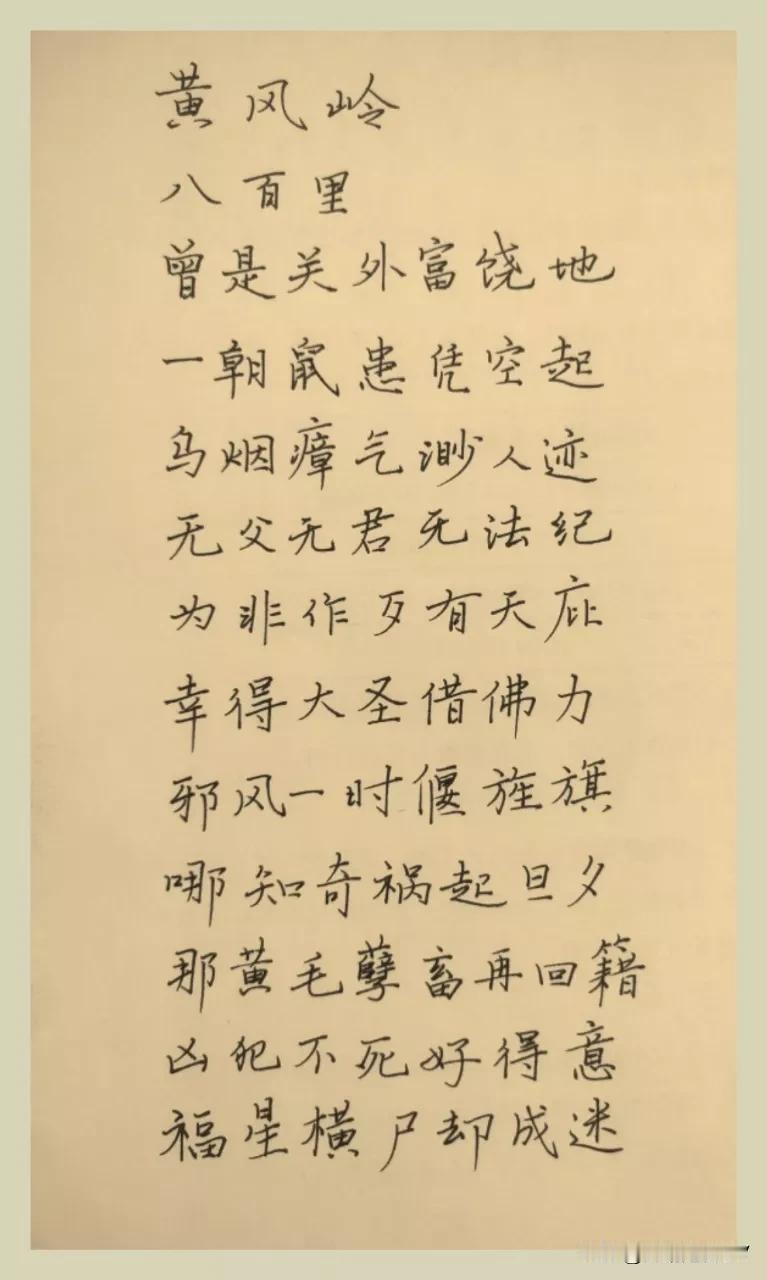 黄风岭
八百里
曾是关外富饶地
一朝鼠患凭空起
乌烟瘴气渺人迹
无父无君无法纪
为非作歹有天庇
幸得大圣借佛力
邪风一时偃旌旗
哪知奇祸起旦夕
那黄毛孽畜再回籍
凶犯不死好得意
福星横尸却成迷